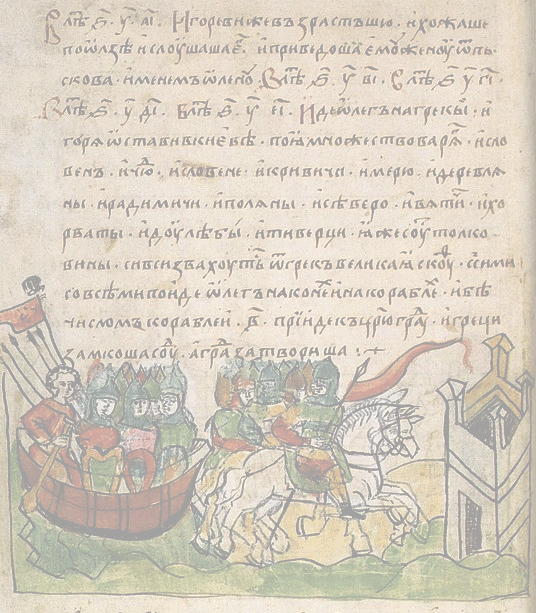 В лѣт҃ ѕ҃ . у҃ . аі҃ . Игореви же възрастъшю . и хожаше
по ѡлзѣ и слоушаша ег҃ . и приведоша ему женоу ѿ пь-
скова . именемъ ѡленоу В лѣт҃ ѕ҃ у҃ ві҃ . В лѣт҃ ѕ҃ у҃ гі҃
В лѣт҃ ѕ҃ . у҃ ді҃ . В лѣт҃ ѕ҃ . у҃ еі҃ . Иде ѡлегъ на грекы . и
горѧ ѡставивъ киевѣ . поѩ множество варѧ . и сло
венъ . и чю . и словене . и кривичи . и мерю . и деревлѧ
ны . и радимичи . и полѧны . и сѣверо . и вѧтичи . и хо
рваты . и доулѣбы . и тиверци . ꙗже соу толко
вины . си вси звахоуть ѿ грекъ великаꙗ скоу . с сими
со всѣми поиде ѡлегъ на конех и на корабле . и бѣ
числомъ кораблеи . в҃ . приіде къ црюграу . и греци
замкоша соу . а гра затвориша :+